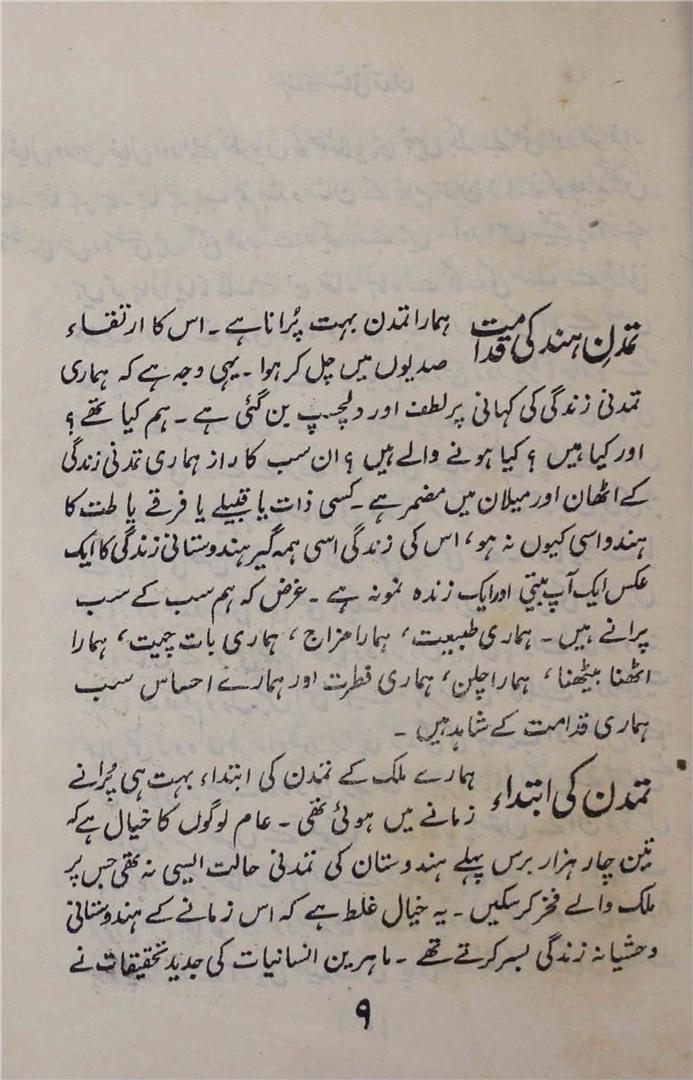 تمدنِ ہند کی قدامت ہمارا تمدن بہت پُرانا ہے ۔ اس کا ارتقاء
صدیوں میں چل کر ہوا ۔ یہی وجہ ہے کہ ہماری
تمدنی زندگی کی کہانی پر لطف اور دلچسپ بن گئی ہے ۔ ہم کیا تھے ؟
اور کیا ہیں ؟ کیا ہونے والے ہیں ؟ ان سب کا راز ہماری تمدنی زندگی
کے اٹھان اور میلان میں مضمر ہے ۔ کسی ذات یا قبیلے یا فرقے یا ملت کا
ہندواسی کیوں نہ ہو، اس کی زندگی اسی ہمہ گیر ہندوستانی زندگی کا ایک
عکس ایک آپ بیتی اور ایک زندہ نمونہ ہے ۔ غرض کہ ہم سب کے سب
پرانے ہیں ۔ ہماری طبیعت، ہمارا مزاج، ہماری بات چیت، ہمارا
اٹھنا بیٹھنا، ہمارا چلن، ہماری فطرت اور ہمارے احساس سب
ہماری قدامت کے شاہد ہیں ۔
تمدن کی ابتداء ہمارے ملک کے تمدن کی ابتداء بہت ہی پُرانے
زمانے میں ہوئی تھی ۔ عام لوگوں کا خیال ہے کہ
تین چار ہزار برس پہلے ہندوستان کی تمدنی حالت ایسی نہ تھی جس پر
ملک والے فخر کر سکیں ۔ یہ خیال غلط ہے کہ اس زمانے کے ہندوستانی
وحشیانہ زندگی بسر کرتے تھے ۔ ماہرین انسانیات کی جدید تحقیقات نے
۹